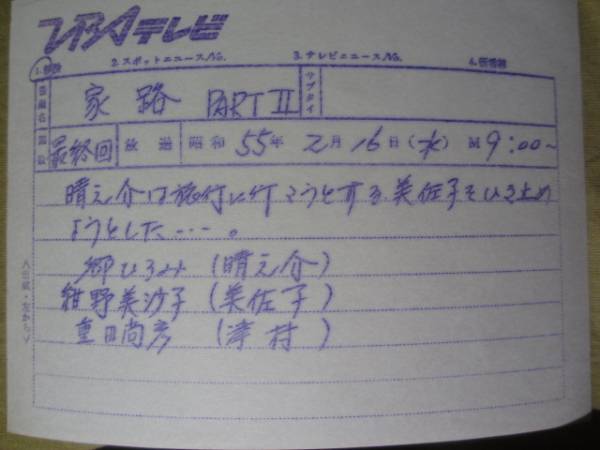 テレビ
2.スポットニュースNo. 3.テレビニュースNo.
番組名 家路 PARTII サブタイ
回数 最終回 放送 昭和55年2月16日(水) 9:00~
晴之介は旅行に行こうとする美佐子をひき止め
ようとした……。
郷ひろみ(晴之介)
紺野美沙子(美佐子)
重田尚彦(津村)